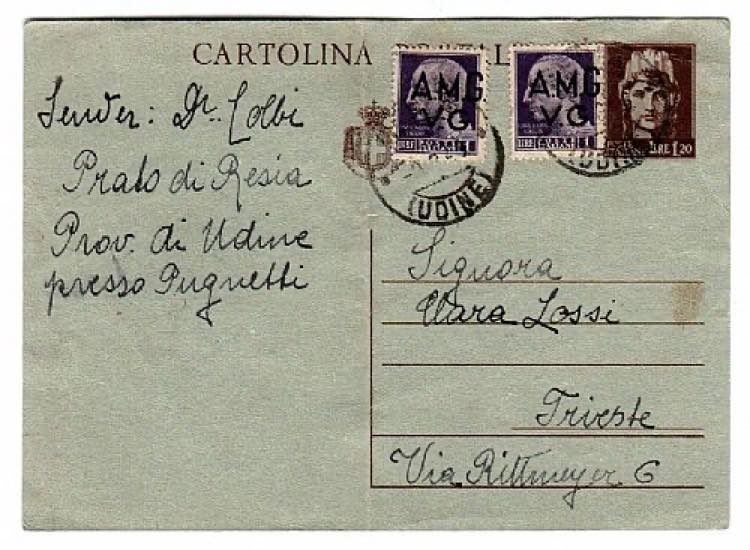 CARTOLINA
AMG
VG
AMG
VG
LIRE 1
LIRE 1
LIRE 1.20
(UDINE)
(UDINE)
Sender: Dr. Colbi
Prato di Resia
Prov. di Udine
presso Pugnetti
Signora
Clara Lossi
Trieste
Via Rittmeyer 6